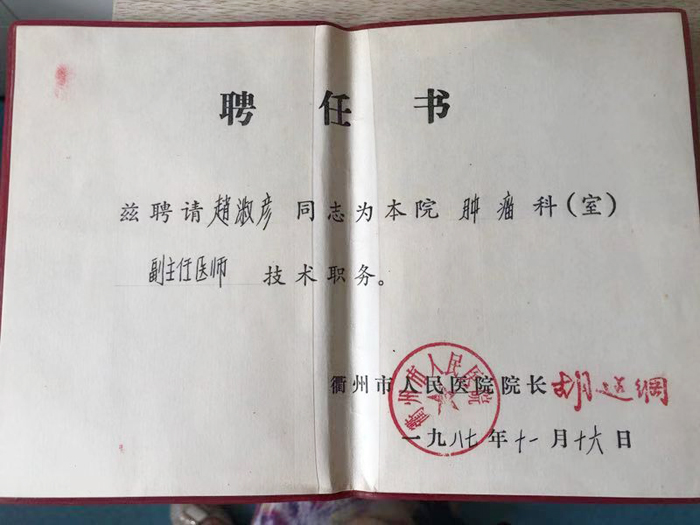 聘任书
兹聘请趙淑彦同志为本院肿瘤科(室)
副主任医师 技术职务。
衢州市人民医院
衢州市人民医院院长
一九八七年十一月十六日